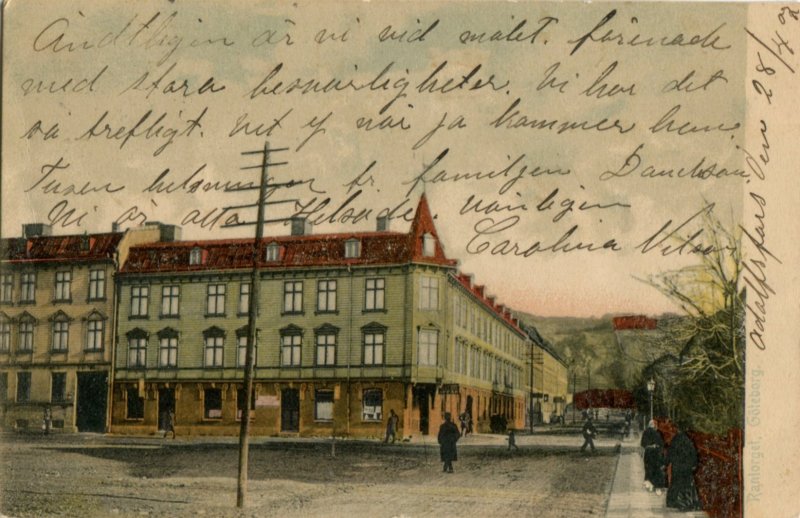 Andtligin är vi vid målet. förenade
med stora besvärligheter. Vi har det
så trefligt. Vet ej när ja kommer hem.
Tusen helsningar fr. familjen Danelson
Ni är alla Helsade vänligen
Carolina Nilson
Adolfsfors Den 28/4 02
Ramtorget, Göteborg.